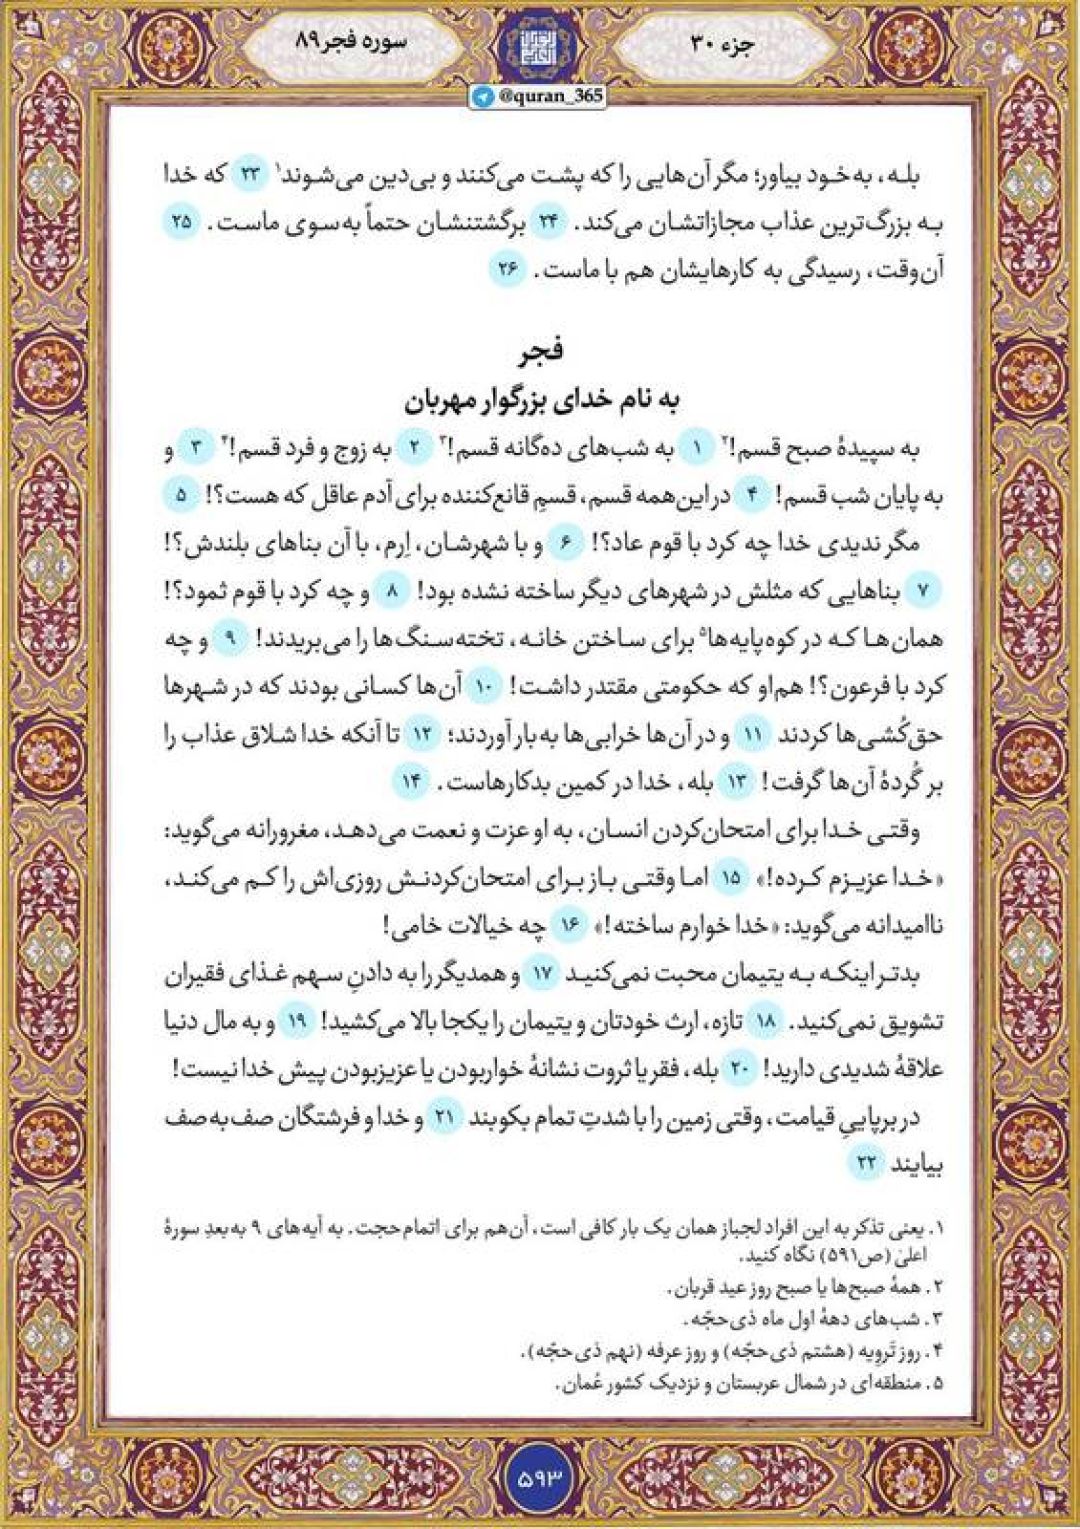 جزء ۳۰
سوره فجر۸۹
@quran_365
بله، به‌خود بیاور؛ مگر آن‌هایی را که پشت می‌کنند و بی‌دین می‌شوند۱ ۲۳ که خدا
به بزرگ‌ترین عذاب مجازاتشان می‌کند. ۲۴ برگشتنشان حتماً به‌سوی ماست. ۲۵
آن‌وقت، رسیدگی به کارهایشان هم با ماست. ۲۶
فجر
به نام خدای بزرگوار مهربان
به سپیدهٔ صبح قسم!۲ ۱ به شب‌های ده‌گانه قسم!۳ ۲ به زوج و فرد قسم!۴ ۳ و
به پایان شب قسم! ۴ در این‌همه قسم، قسمِ قانع‌کننده برای آدم عاقل که هست؟! ۵
مگر ندیدی خدا چه کرد با قوم عاد؟! ۶ و با شهرشان، اِرم، با آن بناهای بلندش؟!
۷ بناهایی که مثلش در شهرهای دیگر ساخته نشده بود! ۸ و چه کرد با قوم ثمود؟!
همان‌ها که در کوه‌پایه‌ها۵ برای ساختن خانه، تخته‌سنگ‌ها را می‌بریدند! ۹ و چه
کرد با فرعون؟! هم‌او که حکومتی مقتدر داشت! ۱۰ آن‌ها کسانی بودند که در شهرها
حق‌کُشی‌ها کردند ۱۱ و در آن‌ها خرابی‌ها به‌بار آوردند؛ ۱۲ تا آنکه خدا شلاق عذاب را
بر گُردهٔ آن‌ها گرفت! ۱۳ بله، خدا در کمین بدکارهاست. ۱۴
وقتی خدا برای امتحان‌کردن انسان، به او عزت و نعمت می‌دهد، مغرورانه می‌گوید:
«خدا عزیزم کرده!» ۱۵ اما وقتی باز برای امتحان‌کردنش روزی‌اش را کم می‌کند،
ناامیدانه می‌گوید: «خدا خوارم ساخته!» ۱۶ چه خیالات خامی!
بدتر اینکه به یتیمان محبت نمی‌کنید ۱۷ و همدیگر را به دادنِ سهم غذای فقیران
تشویق نمی‌کنید. ۱۸ تازه، ارث خودتان و یتیمان را یکجا بالا می‌کشید! ۱۹ و به مال دنیا
علاقهٔ شدیدی دارید! ۲۰ بله، فقر یا ثروت نشانهٔ خواربودن یا عزیزبودن پیش خدا نیست!
در برپاییِ قیامت، وقتی زمین را با شدتِ تمام بکوبند ۲۱ و خدا و فرشتگان صف‌به‌صف
بیایند ۲۲
۱. یعنی تذکر به این افراد لجباز همان یک بار کافی است، آن‌هم برای اتمام‌حجت. به آیه‌های ۹ به‌بعدِ سورهٔ
اعلیٰ (ص۵۹۱) نگاه کنید.
۲. همهٔ صبح‌ها یا صبح روز عید قربان.
۳. شب‌های دههٔ اول ماه ذی‌حجّه.
۴. روز تَرویه (هشتم ذی‌حجّه) و روز عرفه (نهم ذی‌حجّه).
۵. منطقه‌ای در شمال عربستان و نزدیک کشور عُمان.
۵۹۳